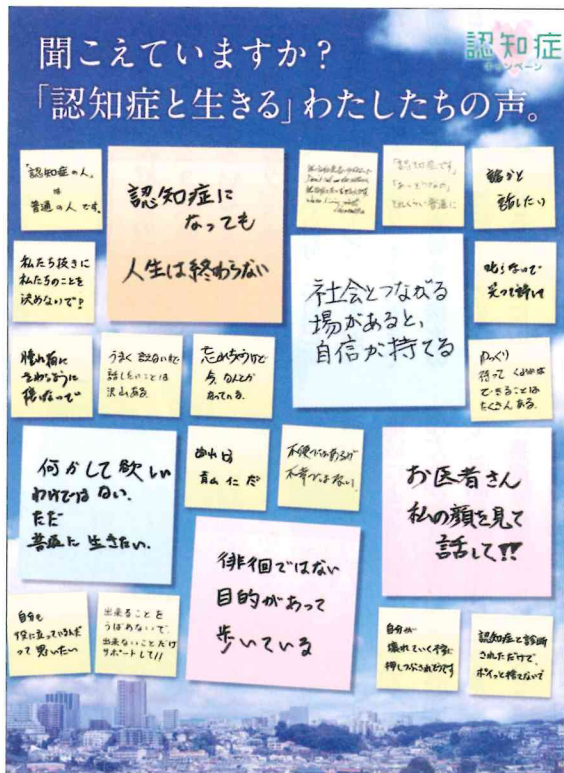 聞こえていますか?
「認知症と生きる」わたしたちの声。
認知症
キャンペーン
「認知症の人」
は
普通の人です。
認知症に
なっても
人生は終わらない
「認知症です」
「あっそうなの」
とれくらい普通に
誰かと
話したい
私たち抜きに
私たちのことを
決めないで?
社会とつながる
場があると、
自信が持てる
叱らないで
笑って許して
腫れ物に
さわるように
接しないで
うまく言えないけど
話したいことは
沢山ある。
忘れちゃうけど
今、なんとか
なっている。
ゆっくり
待ってくれれば
できることは
たくさんある。
何かして欲しい
わけではない。
ただ
普通に生きたい。
青山仁だ
不便ではあるが
不幸ではない。
お医者さん
私の顔を見て
話して!!
徘徊ではない
目的があって
歩いている
自分も
役に立っているんだ
って思いたい
出来ることを
うばわないで、
出来ないことだけ
サポートして!!
自分が
壊れていく様に
押しつぶされそうです
認知症と診断
されただけで、
ポイッと捨てないで